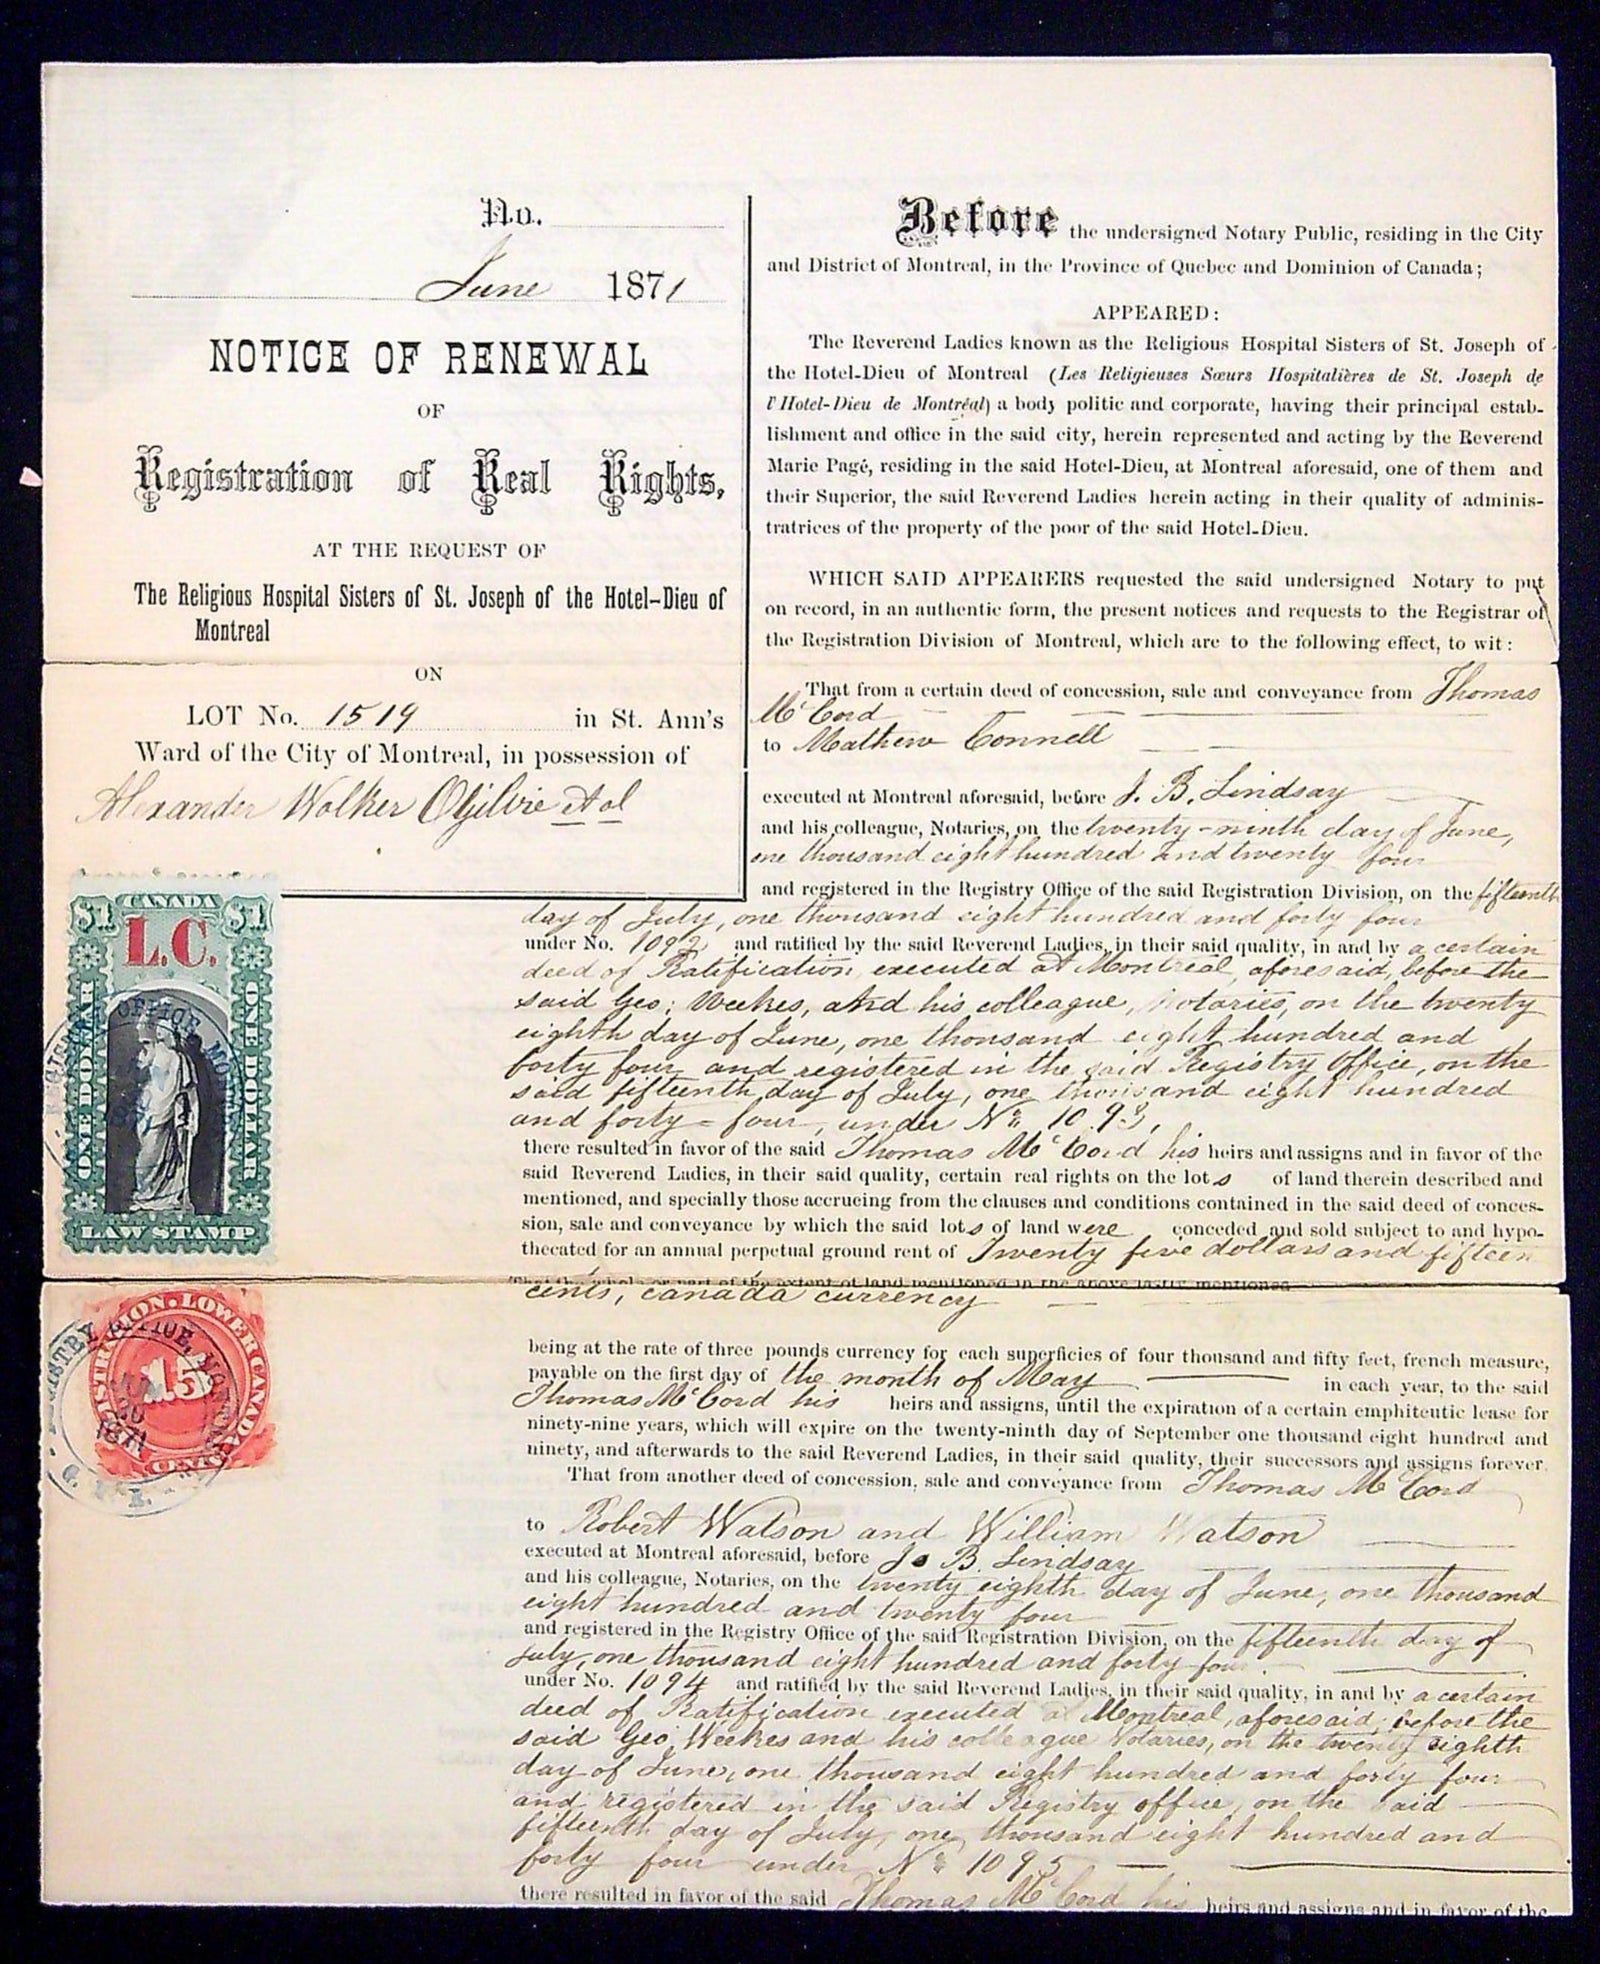 No.
June 1871
NOTICE OF RENEWAL
OF
Registration of Real Rights,
AT THE REQUEST OF
The Religious Hospital Sisters of St. Joseph of the Hotel-Dieu of
Montreal
ON
LOT No. 1519 in St. Ann's
Ward of the City of Montreal, in possession of
Alexander Walker Ogilvie et al
CANADA
$1 $1
L.C.
ONE DOLLAR
ONE DOLLAR
LAW STAMP
REGISTRATION. LOWER CANADA
15
CENTS
1871
Before the undersigned Notary Public, residing in the City
and District of Montreal, in the Province of Quebec and Dominion of Canada;
APPEARED:
The Reverend Ladies known as the Religious Hospital Sisters of St. Joseph of
the Hotel-Dieu of Montreal (Les Religieuses Sœurs Hospitalières de St. Joseph de
l'Hotel-Dieu de Montréal) a body politic and corporate, having their principal estab-
lishment and office in the said city, herein represented and acting by the Reverend
Marie Pagé, residing in the said Hotel-Dieu, at Montreal aforesaid, one of them and
their Superior, the said Reverend Ladies herein acting in their quality of adminis-
tratrices of the property of the poor of the said Hotel-Dieu.
WHICH SAID APPEARERS requested the said undersigned Notary to put
on record, in an authentic form, the present notices and requests to the Registrar of
the Registration Division of Montreal, which are to the following effect, to wit:
That from a certain deed of concession, sale and conveyance from Thomas
McCord
to Mathew Connell
executed at Montreal aforesaid, before J. B. Lindsay
and his colleague, Notaries, on the twenty-ninth day of June,
one thousand eight hundred and twenty four
and registered in the Registry Office of the said Registration Division, on the fifteenth
day of July, one thousand eight hundred and forty four
under No. 1092 and ratified by the said Reverend Ladies, in their said quality, in and by a certain
deed of Ratification executed at Montreal, aforesaid, before the
said Geo: Weekes, and his colleague, Notaries, on the twenty
eighth day of June, one thousand eight hundred and
forty four and registered in the said Registry Office, on the
said fifteenth day of July, one thousand eight hundred
and forty-four, under No. 1093,
there resulted in favor of the said Thomas McCord his heirs and assigns and in favor of the
said Reverend Ladies, in their said quality, certain real rights on the lots of land therein described and
mentioned, and specially those accrueing from the clauses and conditions contained in the said deed of conces-
sion, sale and conveyance by which the said lots of land were conceded and sold subject to and hypo-
thecated for an annual perpetual ground rent of Twenty five dollars and fifteen
That the whole or part of the extent of land mentioned in the above lastly mentioned
cents, canada currency
being at the rate of three pounds currency for each superficies of four thousand and fifty feet, french measure,
payable on the first day of the month of May in each year, to the said
Thomas McCord his heirs and assigns, until the expiration of a certain emphiteutic lease for
ninety-nine years, which will expire on the twenty-ninth day of September one thousand eight hundred and
ninety, and afterwards to the said Reverend Ladies, in their said quality, their successors and assigns forever.
That from another deed of concession, sale and conveyance from Thomas McCord
to Robert Watson and William Watson
executed at Montreal aforesaid, before J. B. Lindsay
and his colleague, Notaries, on the twenty eighth day of June, one thousand
eight hundred and twenty four
and registered in the Registry Office of the said Registration Division, on the fifteenth day of
July, one thousand eight hundred and forty four.
under No. 1094 and ratified by the said Reverend Ladies, in their said quality, in and by a certain
deed of Ratification executed at Montreal, aforesaid, before the
said Geo. Weekes and his colleague Notaries, on the twenty eighth
day of June, one thousand eight hundred and forty four
and registered in the said Registry office, on the said
fifteenth day of July, one thousand eight hundred and
forty four under No. 1095
there resulted in favor of the said Thomas McCord his heirs and assigns and in favor of the